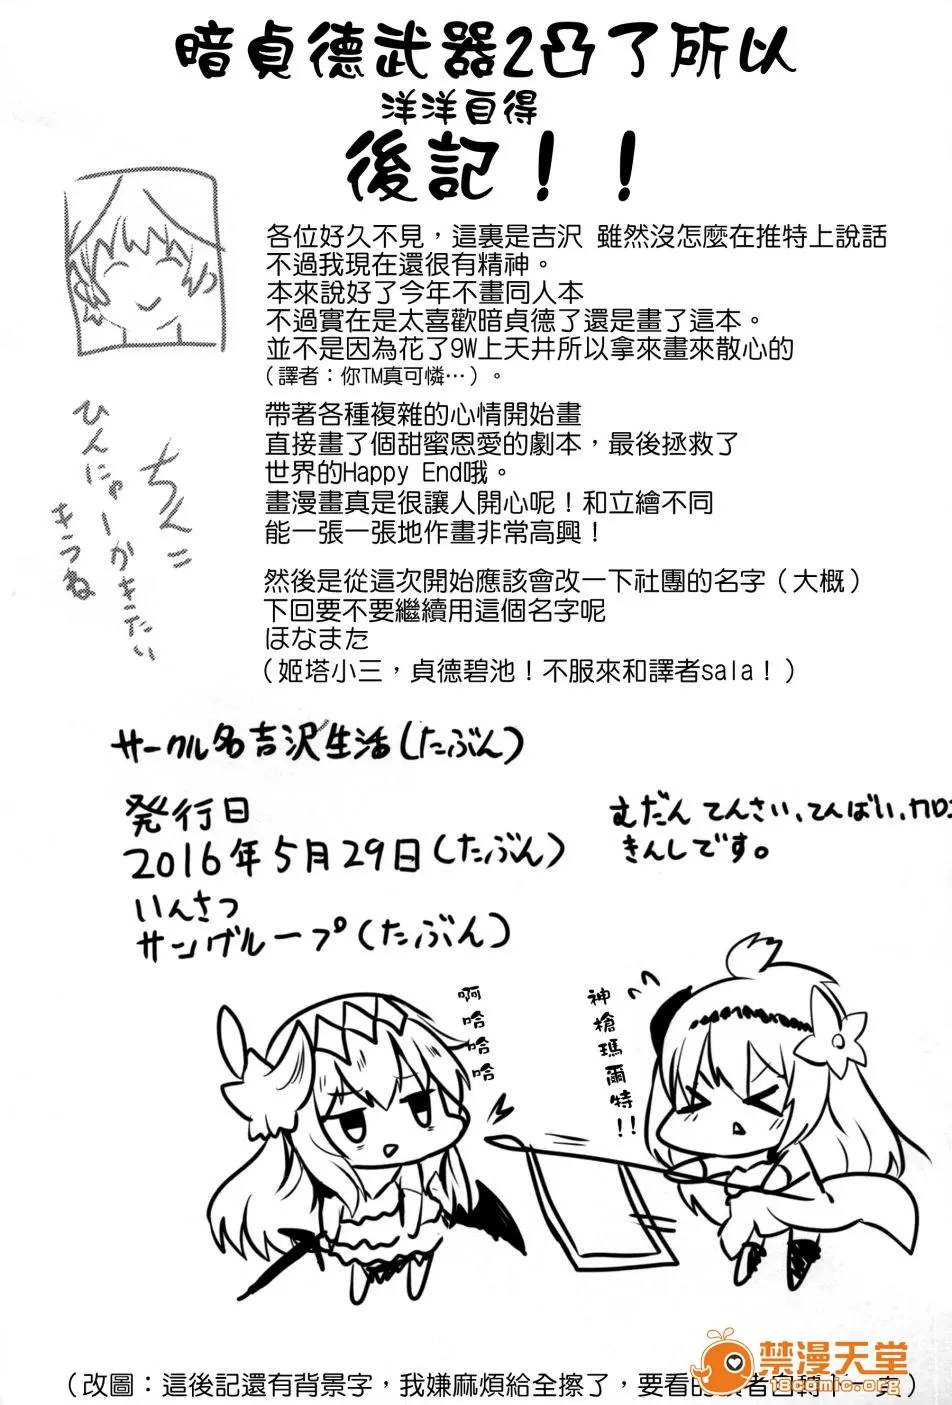 暗貞德武器2凸了所以
洋洋自得
後記！！
各位好久不見，這裏是吉沢 雖然沒怎麼在推特上說話
不過我現在還很有精神。
本來說好了今年不畫同人本
不過實在是太喜歡暗貞德了還是畫了這本。
並不是因為花了9W上天井所以拿來畫來散心的
（譯者：你TM真可憐…）。
帶著各種複雜的心情開始畫
直接畫了個甜蜜恩愛的劇本，最後拯救了
世界的Happy End哦。
畫漫畫真是很讓人開心呢！和立繪不同
能一張一張地作畫非常高興！
然後是從這次開始應該會改一下社團的名字（大概）
下回要不要繼續用這個名字呢
ほなまた
（姬塔小三，貞德碧池！不服來和譯者sala！）
ちんこ
ひんにゃーかきたい
きつね
サークル名吉沢生活(たぶん)
発行日
2016年5月29日(たぶん)
いんさつ
サングループ(たぶん)
むだんてんさい、てんばい、カロ
きんしです。
啊哈哈哈
神槍瑪爾特!!
（改圖：這後記還有背景字，我嫌麻煩給全擦了，要看的
禁漫天堂
18comic.org